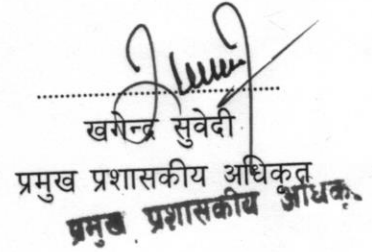 खगेन्द्र सुवेदी
प्रमुख प्रशासकीय अधिकृत
प्रमुख प्रशासकीय अधिकृ